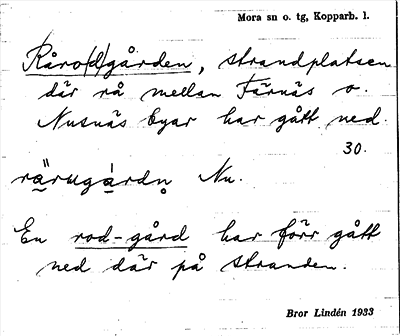 Mora sn o. tg, Kopparb. l.
Råro(d)gården, strandplatsen
där rå mellan Färnäs o.
Nusnäs byar har gått ned.
30.
rärugàrdn Nu.
En rod-gård har förr gått
ned där på stranden.
Bror Lindén 1933